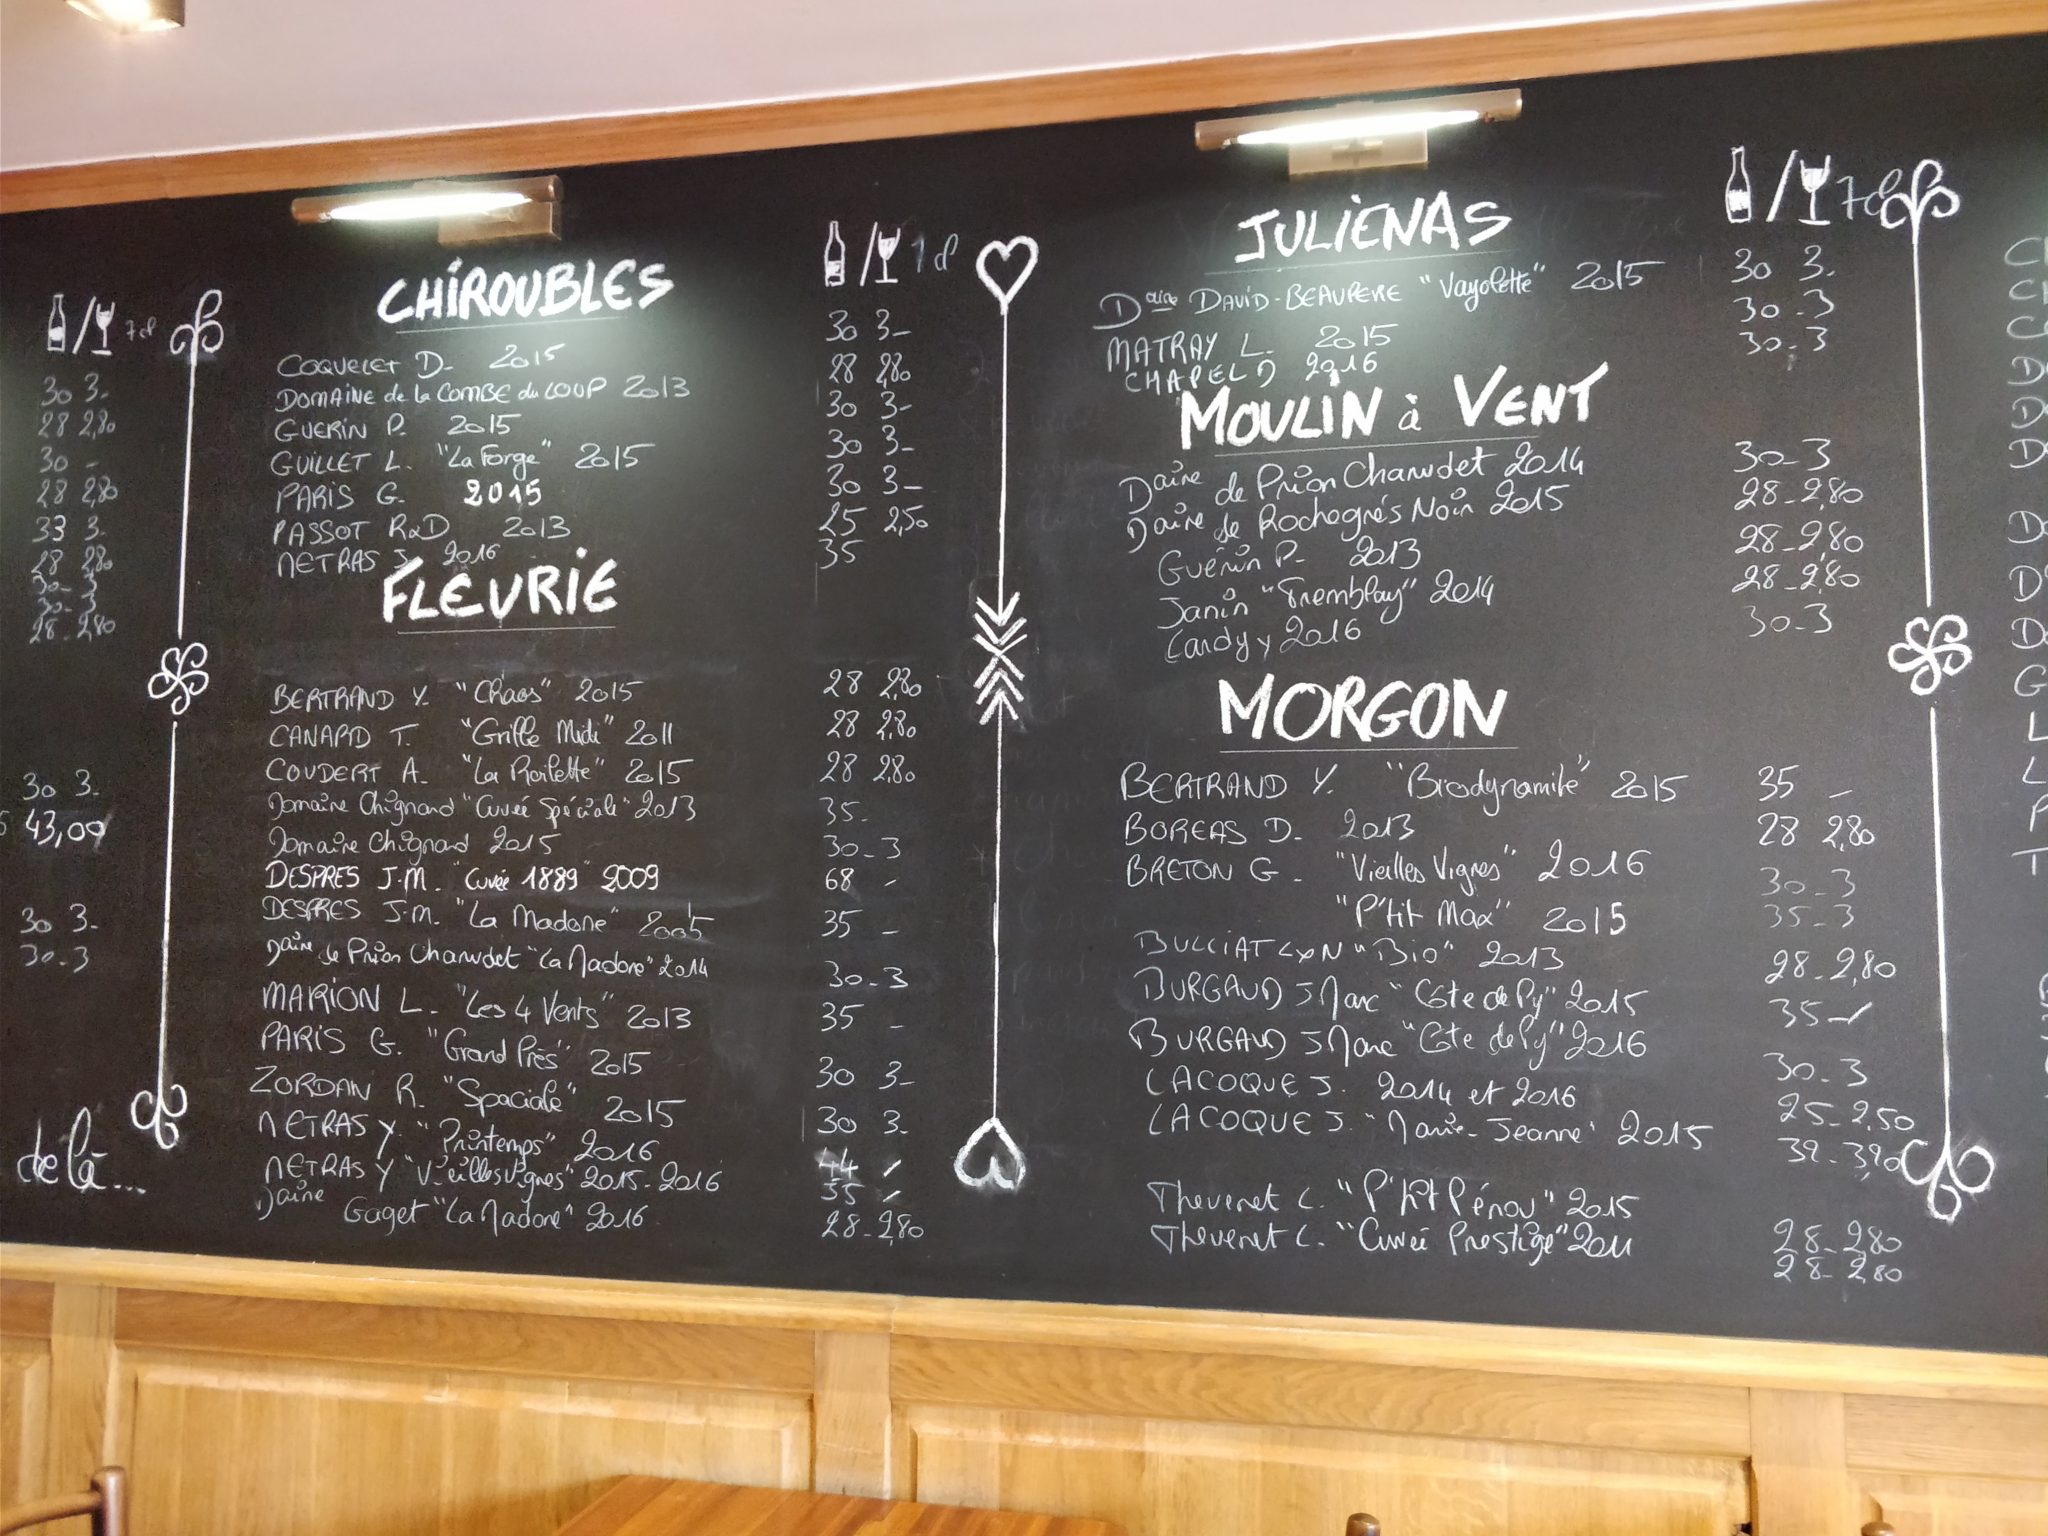 7 cl
30 3-
28 2,80
30 -
28 2,80
33 3-
28 2,80
30-3
30-3
28-2,80
30 3-
43,00
30 3-
30-3
de là...
CHIROUBLES
cl
COQUELET D. 2015 30 3-
DOMAINE de la COMBE du LOUP 2013 28 2,80
GUERIN P. 2015 30 3-
GUILLET L. "La Forge" 2015 30 3-
PARIS G. 2015 30 3-
PASSOT R&D 2013 25 2,50
METRAS J. 2016 35
FLEURIE
BERTRAND Y. "Chaos" 2015 28 2,80
CANARD T. "Grille Midi" 2011 28 2,80
COUDERT A. "La Roilette" 2015 28 2,80
Domaine Chignard "Cuvée Spéciale" 2013 35-
Domaine Chignard 2015 30-3
DESPRES J.M. "Cuvée 1889" 2009 68 -
DESPRES J.M. "La Madone" 2005 35 -
Daine de Prion Charudet "La Madone" 2014 30-3
MARION L. "Les 4 Vents" 2013 35 -
PARIS G. "Grand Près" 2015 30 3-
ZORDAN R. "Spaciale" 2015 30 3-
METRAS Y. "Printemps" 2016 44 -
METRAS Y "Vieilles Vignes" 2015-2016 35 -
Daine Gaget "La Madone" 2016 28-2,80
JULIENAS
7cl
Daine DAVID-BEAUPERE "Vayolette" 2015 30 3-
MATRAY L. 2015 30-3
CHAPEL D 2016 30-3
MOULIN à VENT
Daine de Prion Charudet 2014 30-3
Daine de Rochegrés Noir 2015 28-2,80
Guérin P. 2013 28-2,80
Janin "Tremblay" 2014 28-2,80
Lardy y 2016 30-3
MORGON
BERTRAND Y. "Biodynamite" 2015 35 -
BOREAS D. 2013 28 2,80
BRETON G. "Vieilles Vignes" 2016 30-3
"P'tit Max" 2015 35-3
BULLIAT L&N "Bio" 2013 28-2,80
BURGAUD J Marc "Côte de Py" 2015 35-
BURGAUD J Marc "Côte de Py" 2016 30-3
LACOQUE J. 2014 et 2016 25-2,50
LACOQUE J. "Marie-Jeanne" 2015 39-3,90
Thevenet L. "P'tit Pérou" 2015 28-2,80
Thevenet L. "Cuvée Prestige" 2011 28-2,80